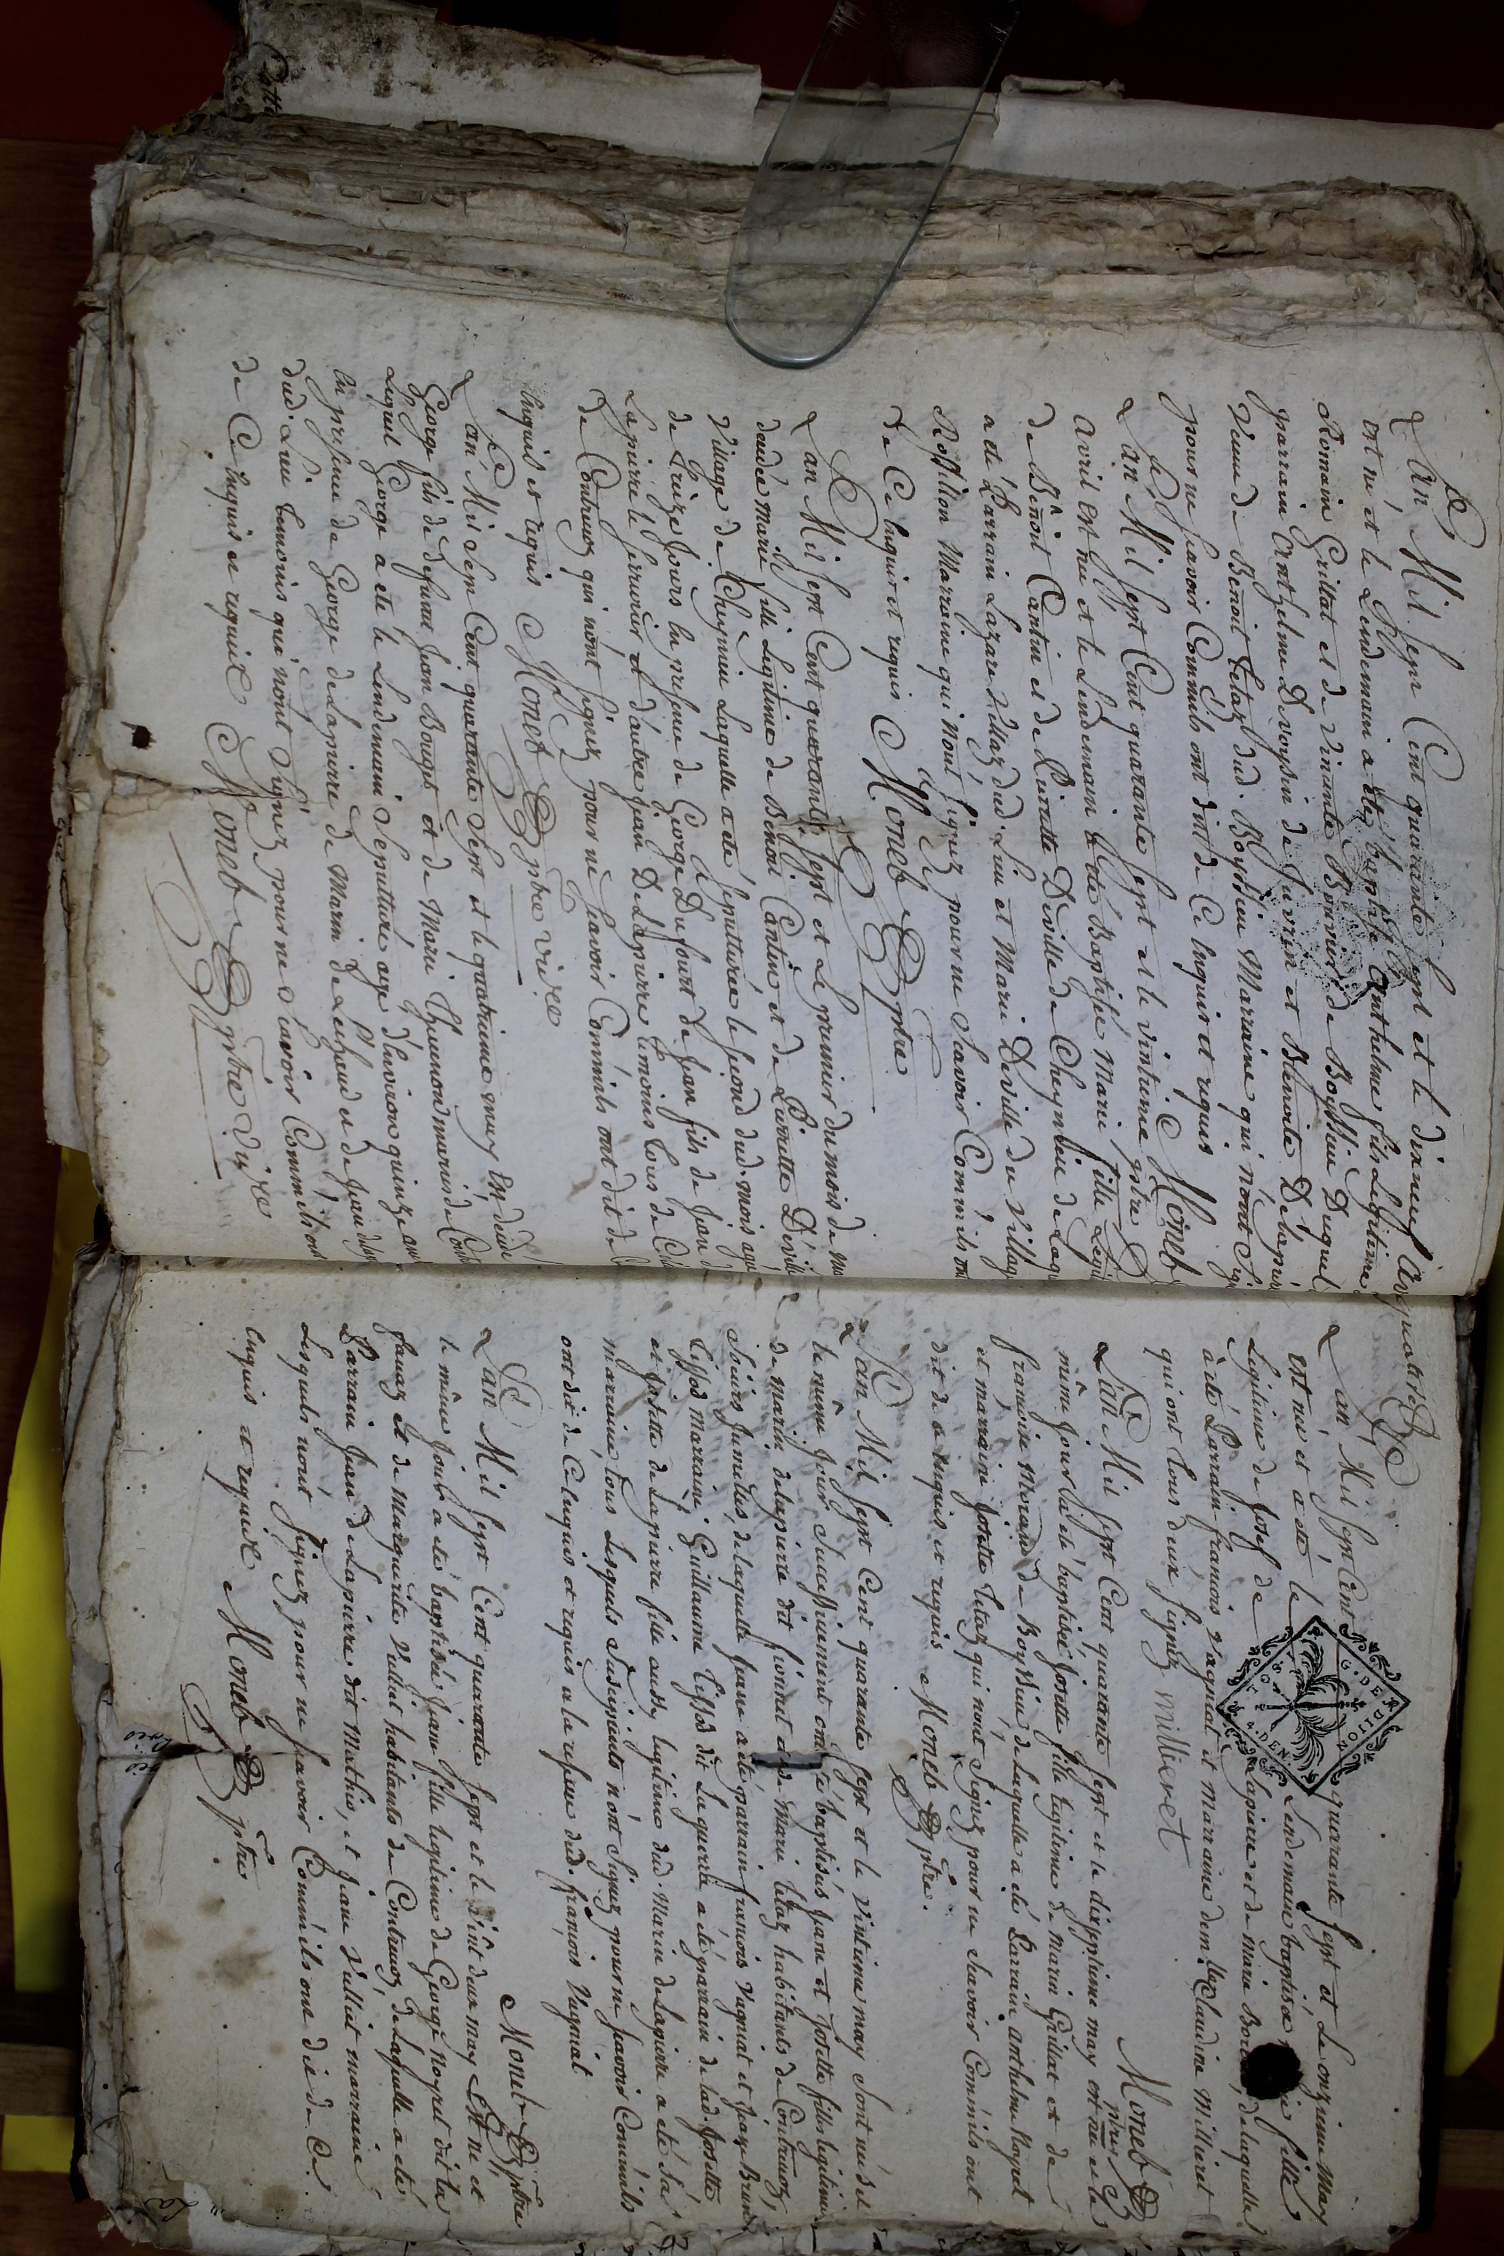 quatre
L'an Mil sept Cent quarante sept et le dixneuf avril
est né et le Lendemain a été baptisé Anthelme fils Legitime
Romain Grillat et de Vincente Bonnier de Boyssieu Duquel
parrain Anthelme Devoysin de Jurrin et Benoite Delapierre
Veuve de Benoit Tetaz dud. Boyssieu Marraine qui n'ont Sig
pour ne scavoir Comm'ils ont dit de Ce Enquis et requis
Monet
L'an Mil sept Cent quarante sept et le vintieme
avril est née et le Lendemain a été Baptisée Marie fille Legi
de Bênoit Cantin et de Pierrette Deville de Cheynieu de Laq
a été Parrain Lazare Villaz dud. Lieu et Marie Deville du Villag
Rossillon Marraine qui n'ont signez pour ne scavoir Comm'ils on
de Ce Enquis et requis Monet ptre
L'an Mil sept Cent quarante sept et Le premier du mois de ma
decedée marie fille Legitime de Benoit Cantin et de Pierrette Devill
Village de Cheynieu Laquelle a été sepulturée le second dud. mois agé
de treize jours en presence de George Dufour de Jean fils de Jean D
Lapierre le serrurier et d'autre Jean Delapierre temoins tous de C
de Contrevoz qui n'ont signez pour ne scavoir Comm'ils ont dit de C
Enquis et requis Monet ptre vic.re
L'an Mil sept Cent quarante sept et le quatrieme may Est decedé
George fils de deffunt Jean Bouget et de Marie Thevenon mariés de Cont
Lequel George a été le Lendemain sepulturé agé d'environ quinze ans
En presence de George delapierre de Marin de Lecheud et de Jean delap
dud. Lieu temoins qui n'ont signez pour ne scavoir Comm'ils ont
de Ce Enquis et requis Monet ptre vic.re
L'an Mil sept Cent quarante sept et Le onzieme May
est née et a été le Lendemain baptisée fille
Legitime de Josef de Lapierre et de Marie de Laquelle
à été Parrain francois Vagniat et Marraine dem.lle Claudine Millieret
qui ont tous deux signez millieret Monet ptre
L'an Mil sept Cent quarante sept et le dixseptieme may est née et le
même jour a été baptisée Josette fille legitime de Marin Grillat et de
francoise Morand de Boyssieu de Laquelle a été Parrain anthelme Noyret
et marraine Josette Tetaz qui n'ont signez pour ne scavoir Comm'ils ont
dit de ce enquis et requis Monet ptre.
L'an Mil sept Cent quarante sept et le vintieme may sont nées et
le même jour successivement ont été baptisées Jeane et Josette filles legitimes
de Marin delapierre dit Lionnet et de Marie Tetaz habitants de Contrevoz,
soeurs jumelles, de laquelle Jeane a été parrain francois Vagniat et Jeane Brunet
marraine Guillaume Tissot dit La guerre a été parrain de lad. Josette
et Josette de Lapierre fille aussy legitime dud. Marin delapierre a été sa
marraine, tous Lesquels susdesignés n'ont signez pour ne scavoir Comm'ils
ont dit de Ce enquis et requis a la reserve dud. francois Vagniat
Monet ptre
L'an Mil sept Cent quarante sept et le vint deux may est née et
le même jour a été baptisée Jeane fille legitime de George Noyret dit la
et de Marguerite Villiat habitants de Contrevoz, de laquelle a été
Parrain Jean de Lapierre dit Mathio, et Jeane Villiat marraine
Lesquels n'ont signez pour ne scavoir Comm'ils ont dit de Ce
Enquis et requis Monet ptre
G. DE DIJON